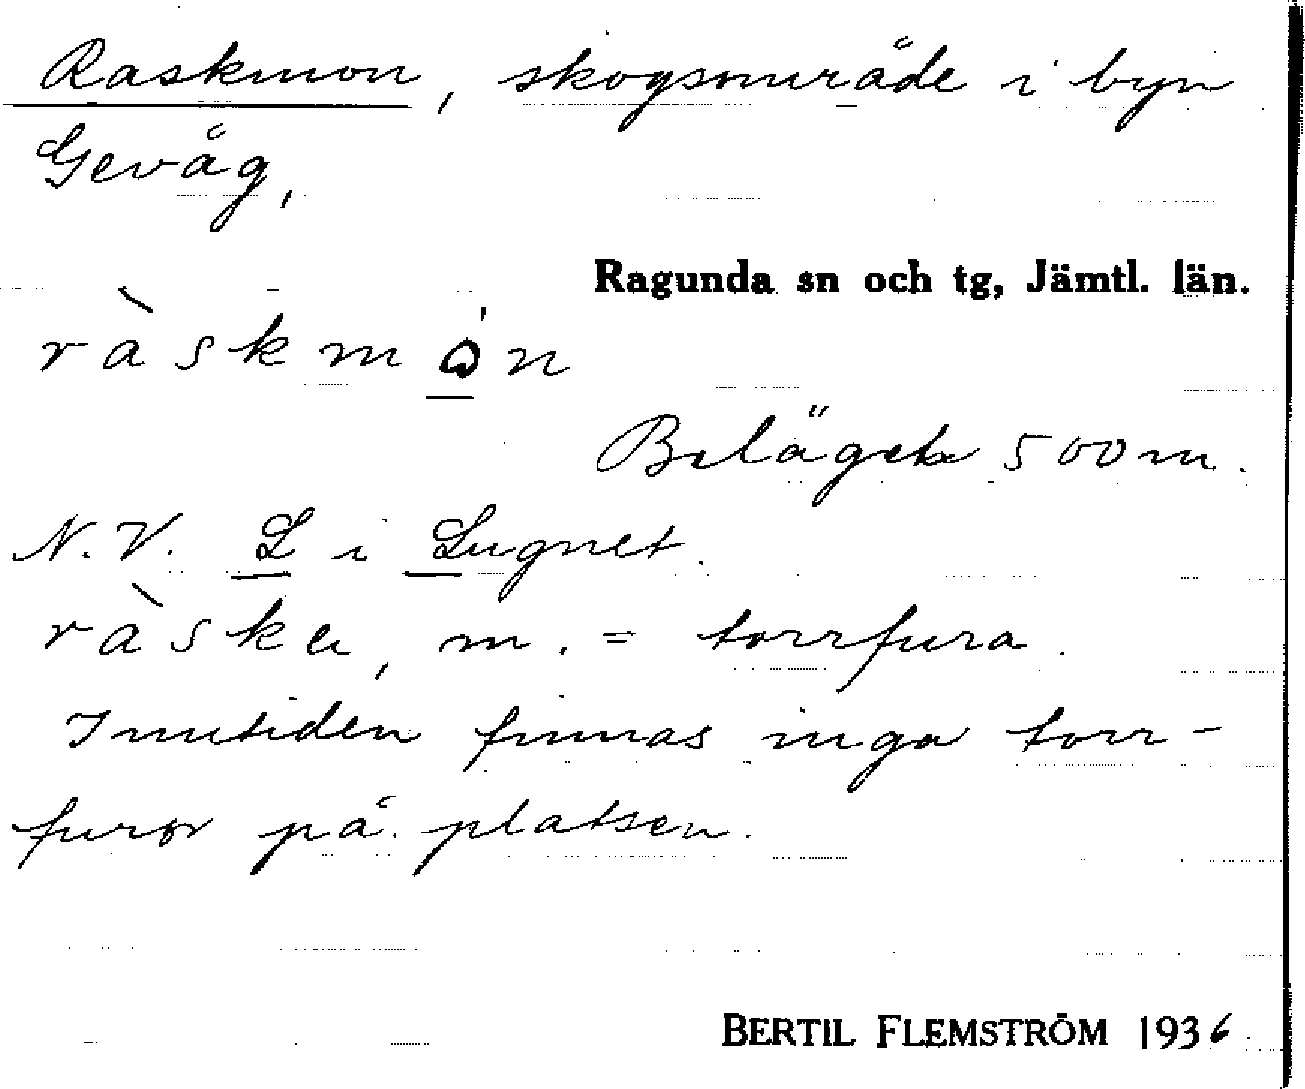 Raskmon, skogsområde i byn
Gevåg,
Ragunda sn och tg, Jämtl. län.
ràskmòn
Beläget 500 m.
N.V. L i Lugnet.
ràska, m. = torrfura.
I nutiden finnas inga torr-
furor på platsen.
BERTIL FLEMSTRÖM 1936